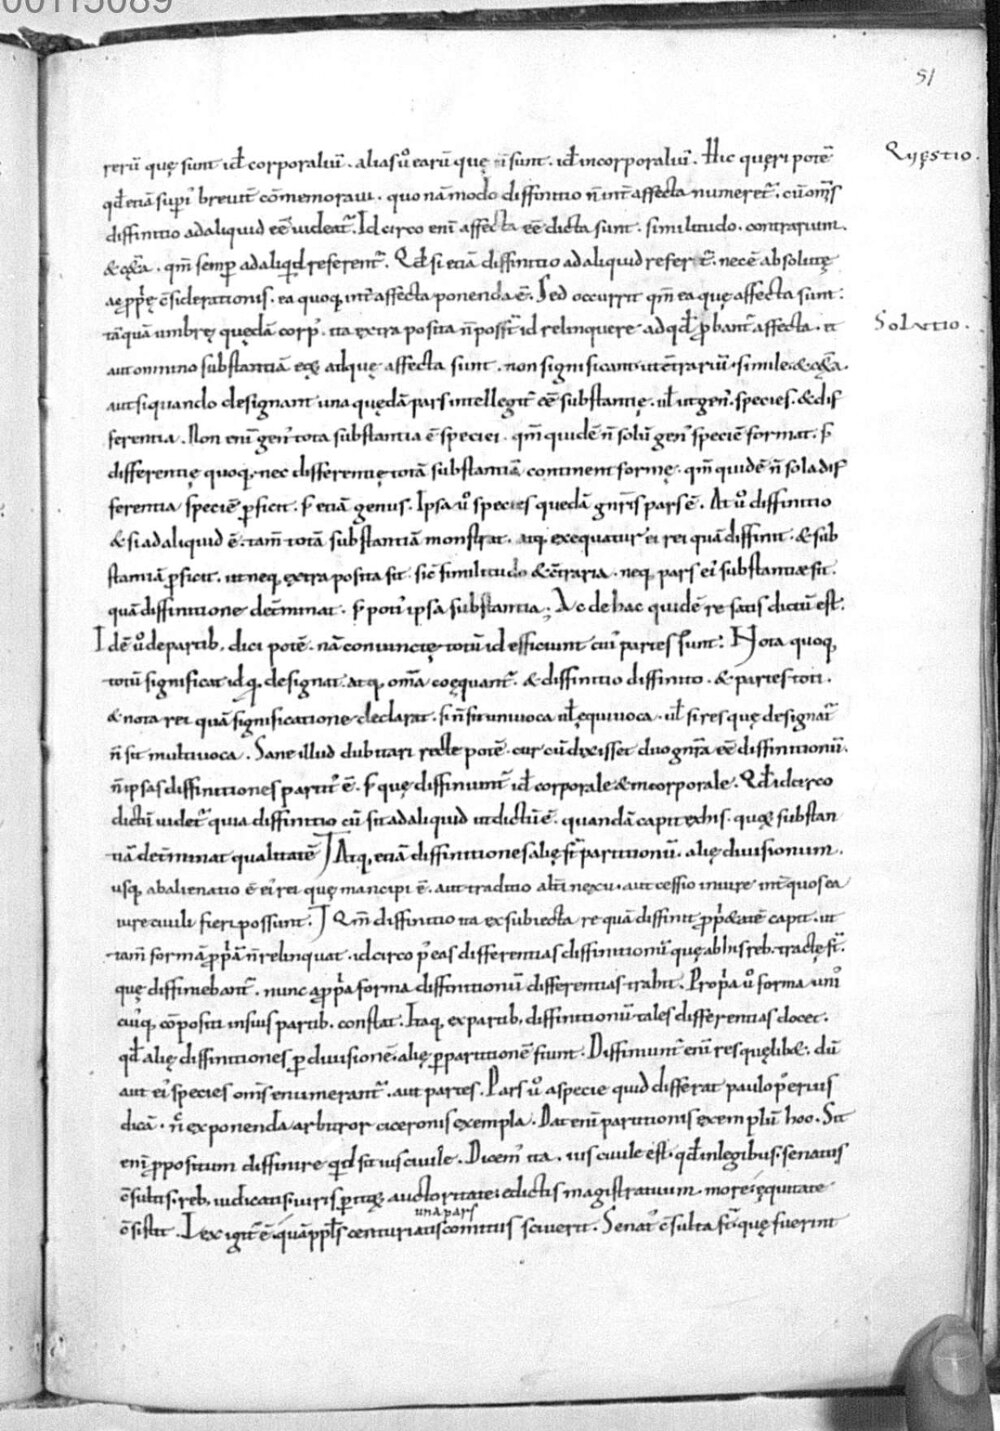 00115089
51
rerū quę sunt id÷ corporaliū. alias ů earū quę n̄ sunt. id÷ incorporaliū. Hic quęri potē
Quęstio.
qđ etiā sup̄i' breuit̄ cōmemoraui. quo nā modo diffinitio n̄ int̄ affecta numeret̄. cū om̄s
diffinitio ad aliquid eē uideat̄. Id circo eni affecta eē dicta sunt. similitudo. contrarium.
& cęt̄a. qm̄ semp̄ ad aliqđ referent̄. Qđ si etiā diffinitio ad aliquid refert̄. necē absolutę
ac p̄prię c̄siderationis. ea quoq; int̄ affecta ponenda ē. Sed occurrit qm̄ ea quę affecta sunt.
tāquā umbrę quędā corp̄' ita extra posita n̄ posst̄ id relinquere ad qđ p̄bant̄ affecta. et
Solutio.
aut omnino substantiā eę atque affecta sunt. non significant ut c̄trariū. simile. & cęt̄a.
aut si quando designant una quędā pars intellegit̄ eē substantię. uł ut gen'. species. & dif
ferentia. Non eni gen' tota substantia ē speciei. qm̄ quidē n̄ solū gen' speciē format. s;
differentię quoq; nec differentię totā substantiā continent formę. qm̄ quidē n̄ sola dif
ferentia speciē p̄ficit. s; etiā genus. Ipsa ů species quedā gn̄ris pars ē. At ů diffinitio
& si ad aliquid ē. tam̄ totā substantiā monstrat. atq; exequatur ei rei quā diffinit. & sub
stantiā p̄ficit. ut neq; extra posita sit. sic similitudo & c̄traria. neq; pars ei' substantiæ sit.
quā diffinitione det̄minat. s; poti' ipsa substantia; Ac de hac quidē re satis dictū est.
Idē ů de partib; dici potē. nā coniunctę totū id efficiunt cui' partes sunt. Nota quoq;
totū significat id qđ designat. atq; om̄a coęquant̄. & diffinitio diffinito. & partes toti.
& nota rei quā significatione declarat. si n̄ sit uniuoca uł ęquiuoca. uł si res quę designat̄
n̄ sit multiuoca. Sane illud dubitari recte potē. cur cū dixisset duo gn̄ra eē diffinitionū.
n̄ ipsas diffinitiones partit' ē. s; quę diffiniunt̄ id÷ corporale & incorporale. Qđ idcirco
dictū uidet̄ quia diffinitio cū sit ad aliquid ut dictū ē. quandā capit ex his. quoȝ substan
tiā det̄minat qualitatē Atq; etiā diffinitiones alię st̄ partitionū. alię diuisionum.
usq; abalienatio ē ei' rei quę mancipi ē. aut traditio alt̄i nexu. aut cessio in iure int̄ quos ea
iure ciuili fieri possunt. Qm̄ diffinitio ita ex subiecta re quā diffinit p̄prietatē capit. ut
tam̄ formā p̄p̄ā n̄ relinquat. idcirco p' eas differentias diffinitionū quę ab his reb; tractę st̄.
quę diffiniebant̄. nunc a p̄p̄a forma diffinitionū differentias trahit. Prop̄a ů forma uni'
cui'q; cōpositi in suis partib; constat. Itaq; ex partib; diffinitionū tales differentias docet.
qđ alię diffinitiones p̄ diuisionē. alię p̄ partitionē fiunt. Diffiniunt̄ eni res quęlibæ. dū
aut ei' species om̄s enumerant̄. aut partes. Pars ů a specie quid differat paulo p'erius
dicā. n̄c exponenda arbitror ciceronis exempla. Dat eni partitionis exemplū hoc. Sit
eni p̄positum diffinire qđ sit ius ciuile. Dicem' ita. ius ciuile est. qđ in legibus. senatus
c̄sultis. reb; iudicatis. iuris p̄itoȝ auctoritate. edictis magistratuum. more. ęquitate
una pars
c̄sistit. Lex igit̄ ē. quā ppl̄s centuriatis comitiis sciuerit. Senat' c̄sulta st̄ quę fuerint